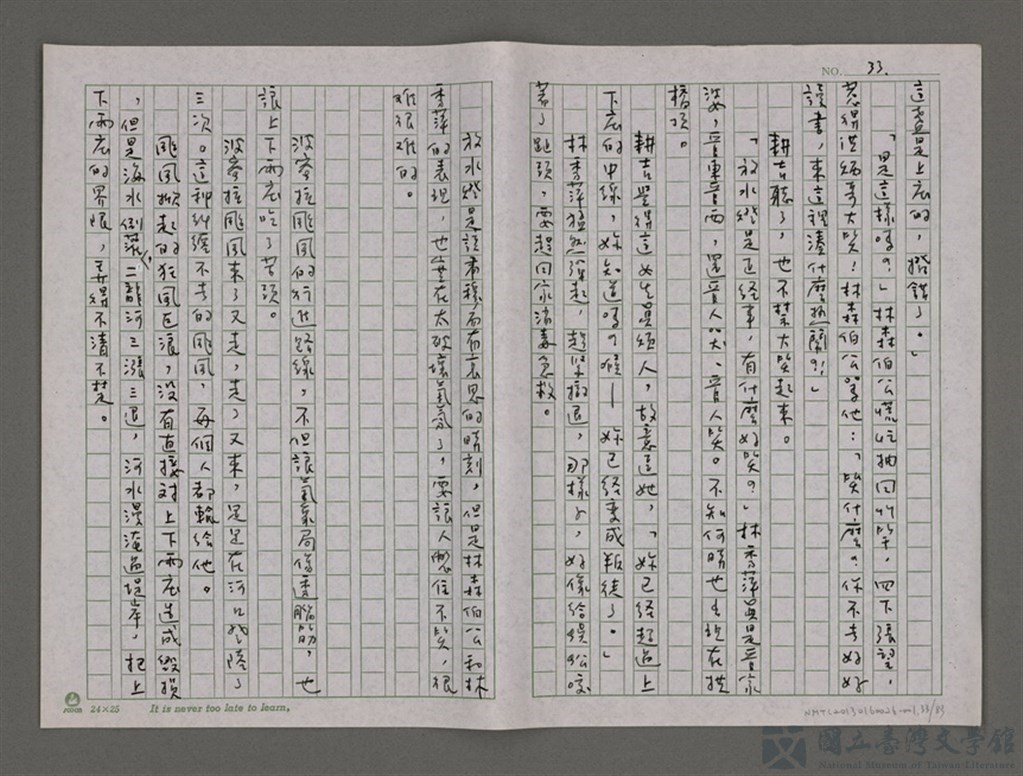 NO. 33.
這盞是上庄的，撈錯了。」
「是這樣嗎？」林森伯公慌忙抽回竹竿，四下張望，
惹得洪炳哥大笑！林森伯公罵他：「笑什麼？你不去好好
讀書，來這裡湊什麼熱鬧？！」
耕吉聽了，也不禁大笑起來。
「放水燈是正經事，有什麼好笑？」林秀萍真是管家
婆，管東管西，還管人哭、管人笑。不知何時也出現在拱
橋頂。
耕吉覺得這女生真煩人，故意逗她，「妳已經超過上
下庄的中線，妳知道嗎？喉—妳已經變成叛徒了。」
林秀萍猛然彈起，趕緊撤退，那樣子，好像給蜈蚣咬
著了趾頭，要趕回家消毒急救。
放水燈是該肅穆而有哀思的時刻，但是林森伯公和林
秀萍的表現，也實在太破壞氣氛了，要讓人憋住不笑，很
難很難的。
波蜜拉颱風的行進路線，不但讓氣象局傷透腦筋，也
讓上下兩庄吃了苦頭。
波蜜拉颱風來了又走，走了又來，足足在河口登陸了
三次。這種糾纏不去的颱風，每個人都輸給他。
颱風掀起的狂風巨浪，沒有直接對上下兩庄造成毀損
，但是海水倒灌，二龍河三漲三退，河水漫淹過堤岸，把上
下兩庄的界限，弄得不清不楚。
24×25 It is never too late to learn,
NMTL20130160026-001.33/83
國立臺灣文學館
National Museum of Taiwan Literature